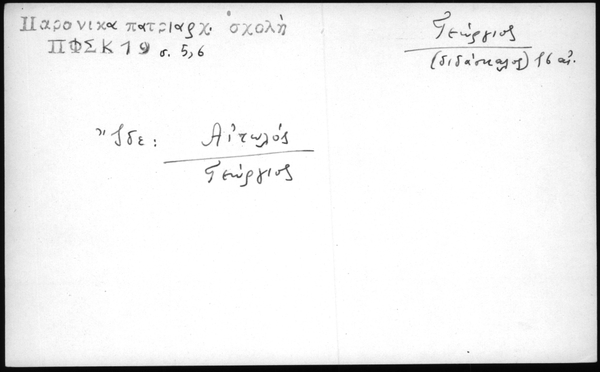 Παρονικα πατριαρχ. σχολή
ΠΦΣΚ 19 σ. 5,6
Γεώργιος
(διδάσκαλος) 16 αἰ.
Ἴδε: Αἰτωλός
Γεώργιος